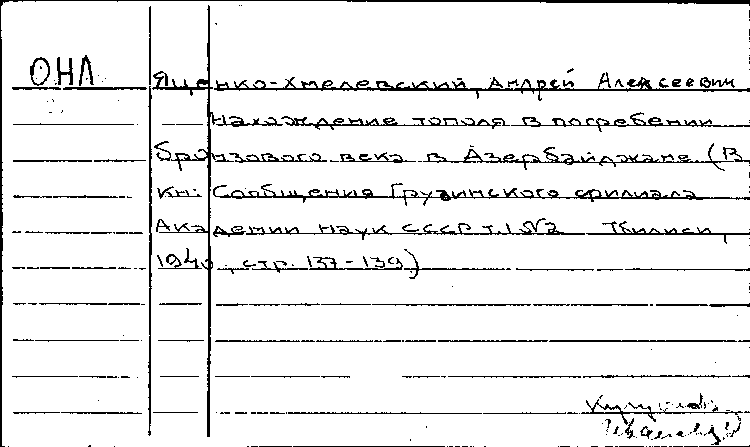 ОНЛ
Яценко-Хмелевский, Андрей Алексеевич
Нахождение тополя в погребении
бронзового века в Азербайджане. (В
кн: Сообщения Грузинского филиала
Академии наук СССР т.1 №2 Тбилиси,
1940, стр. 137-139)